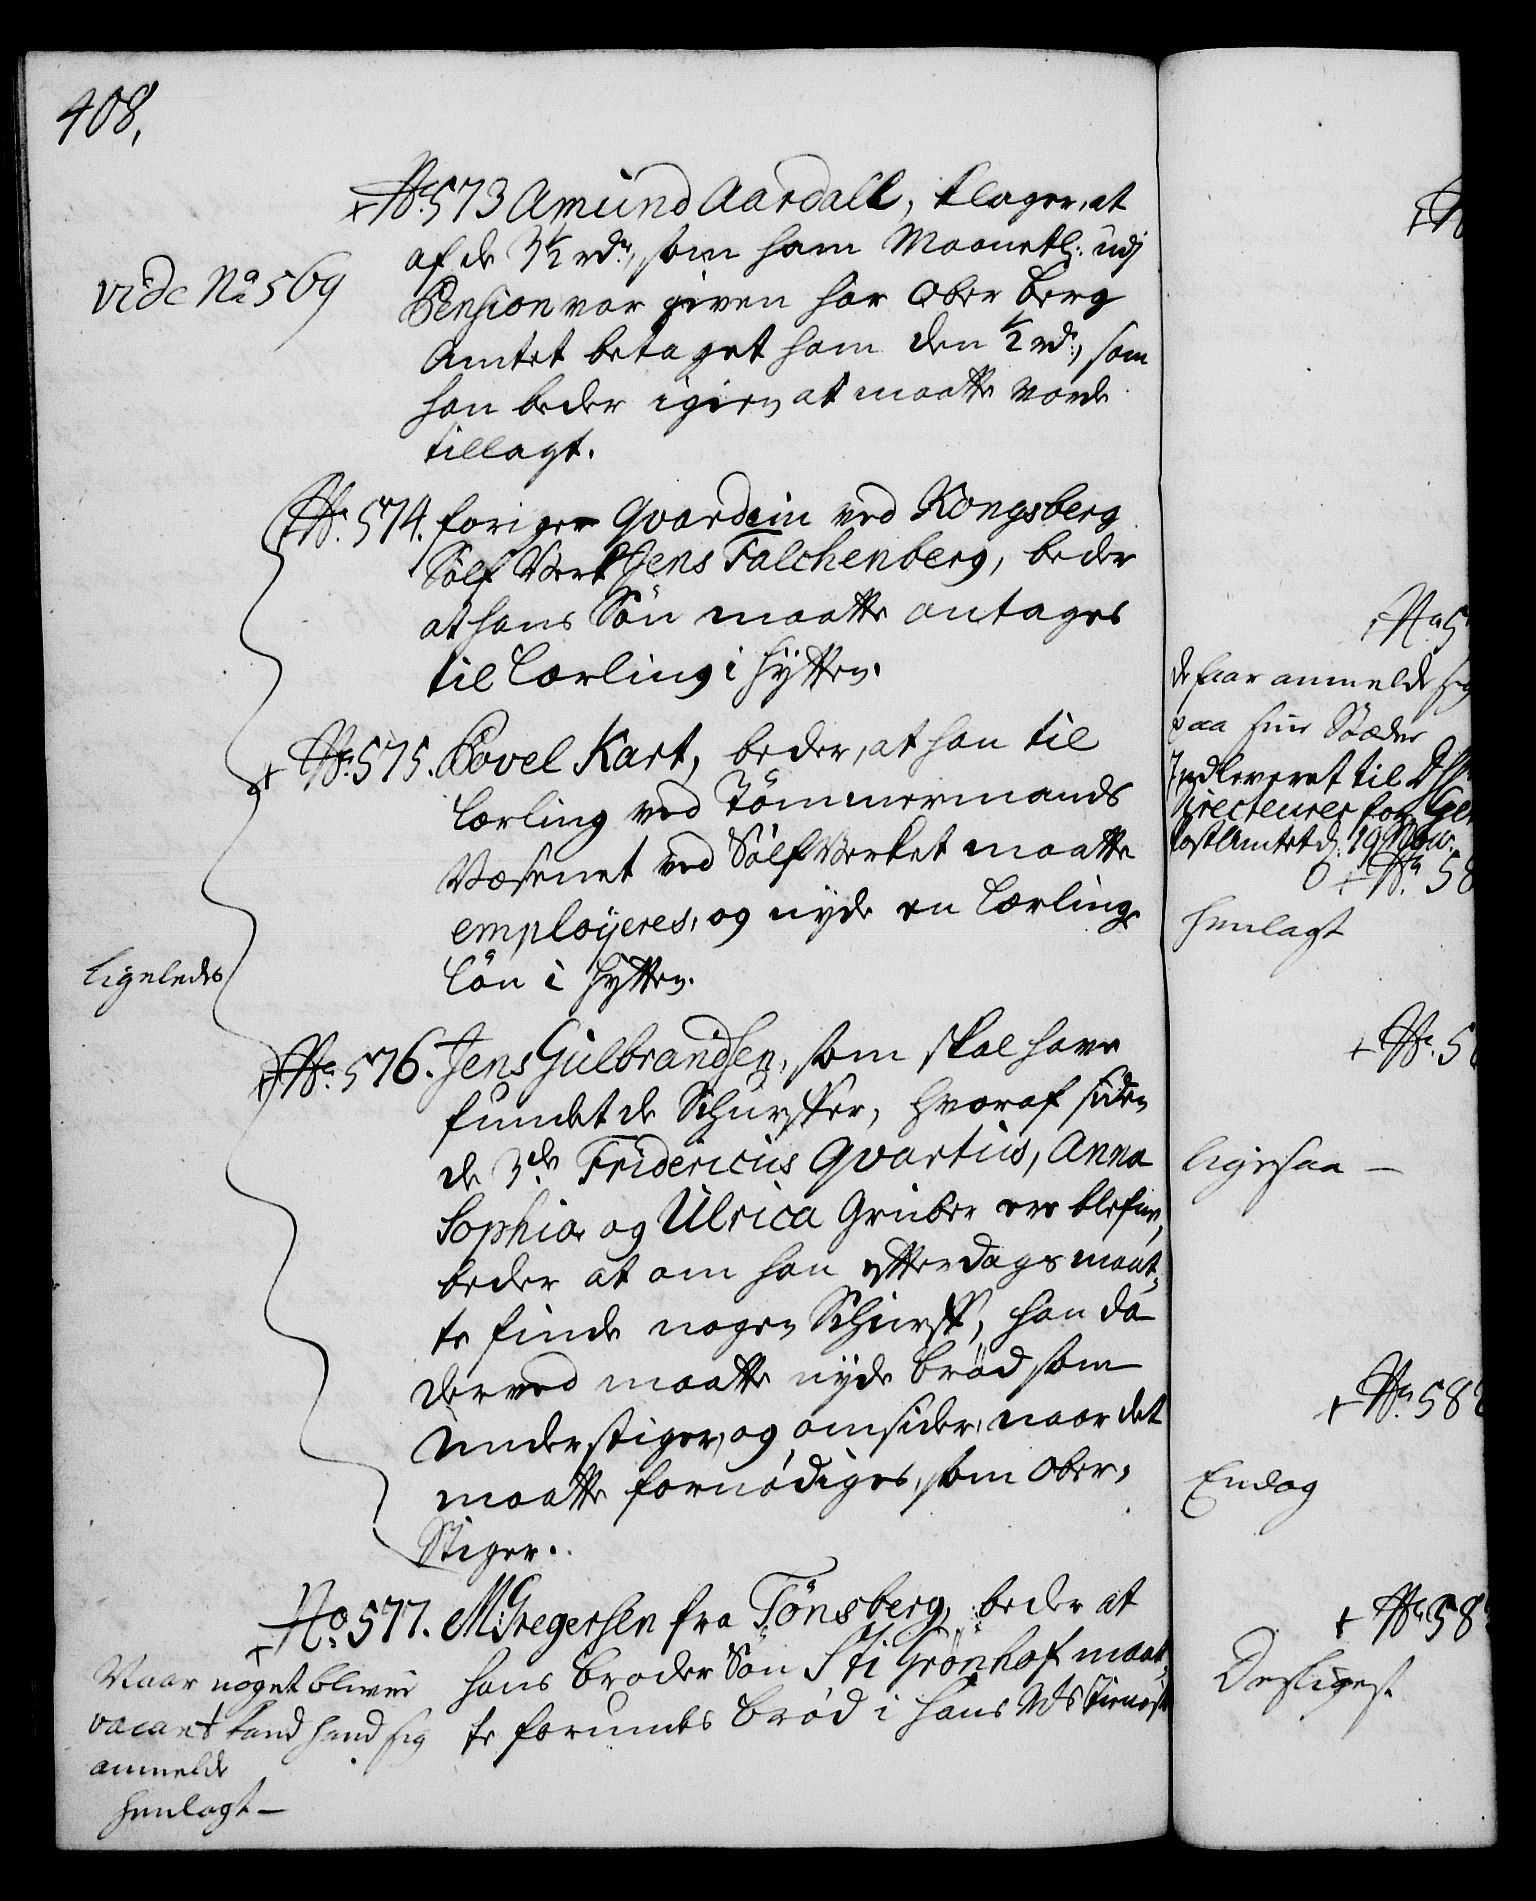 408,
+ No. 573 Amund Aardall, klager, at
af de 3½ rdr, som ham Maanetl: udj
Pension var given har Ober Berg
Amtet betaget ham den ½ rd:, som
han beder igien at maatte vorde
tillagt.
vide No 569
No. 574. foriger Gvardein ved Kongsberg
Sølf Verk Jens Falchenberg, beder
at hans Søn maatte antages
til Lærling i hytten.
+ No. 575. Povel Kart, beder, at han til
Lærling ved Tømmermands
Væsenet ved Sølf Verket maatte
employeres, og nyde en Lærlings
Løn i hytten.
ligeledes
+ No. 576. Jens Gulbrandsen, som skal have
fundet de Schurffer, hvoraf siden
de 3de Fridericus Qvartus, Anna
Sophia og Ulrica Gruber ere blefne,
beder at om han efterdags maat-
te finde nogen Schurff, han da
derved maatte nyde brød som
Understiger, og omsider, naar det
maatte fornødiges, som Ober-
Stiger.
+ No. 577. M: Gregersen fra Tønsberg, beder at
hans broder Søn Sti Grønhof maat-
te forundes brød i hans Mts tieneste
Naar noget bliver
vacant kand hand sig
anmelde
henlagt –
+ N
+ No 5
de faar anmelde sig
paa sine Stæder
Indleveret til
Directeurer for Gen
Post Amtet d. 19 Nov.
+ No. 58
henlagt
+ No. 5
ligesaa –
+ No. 58
Endog
+ No. 58
Desligest